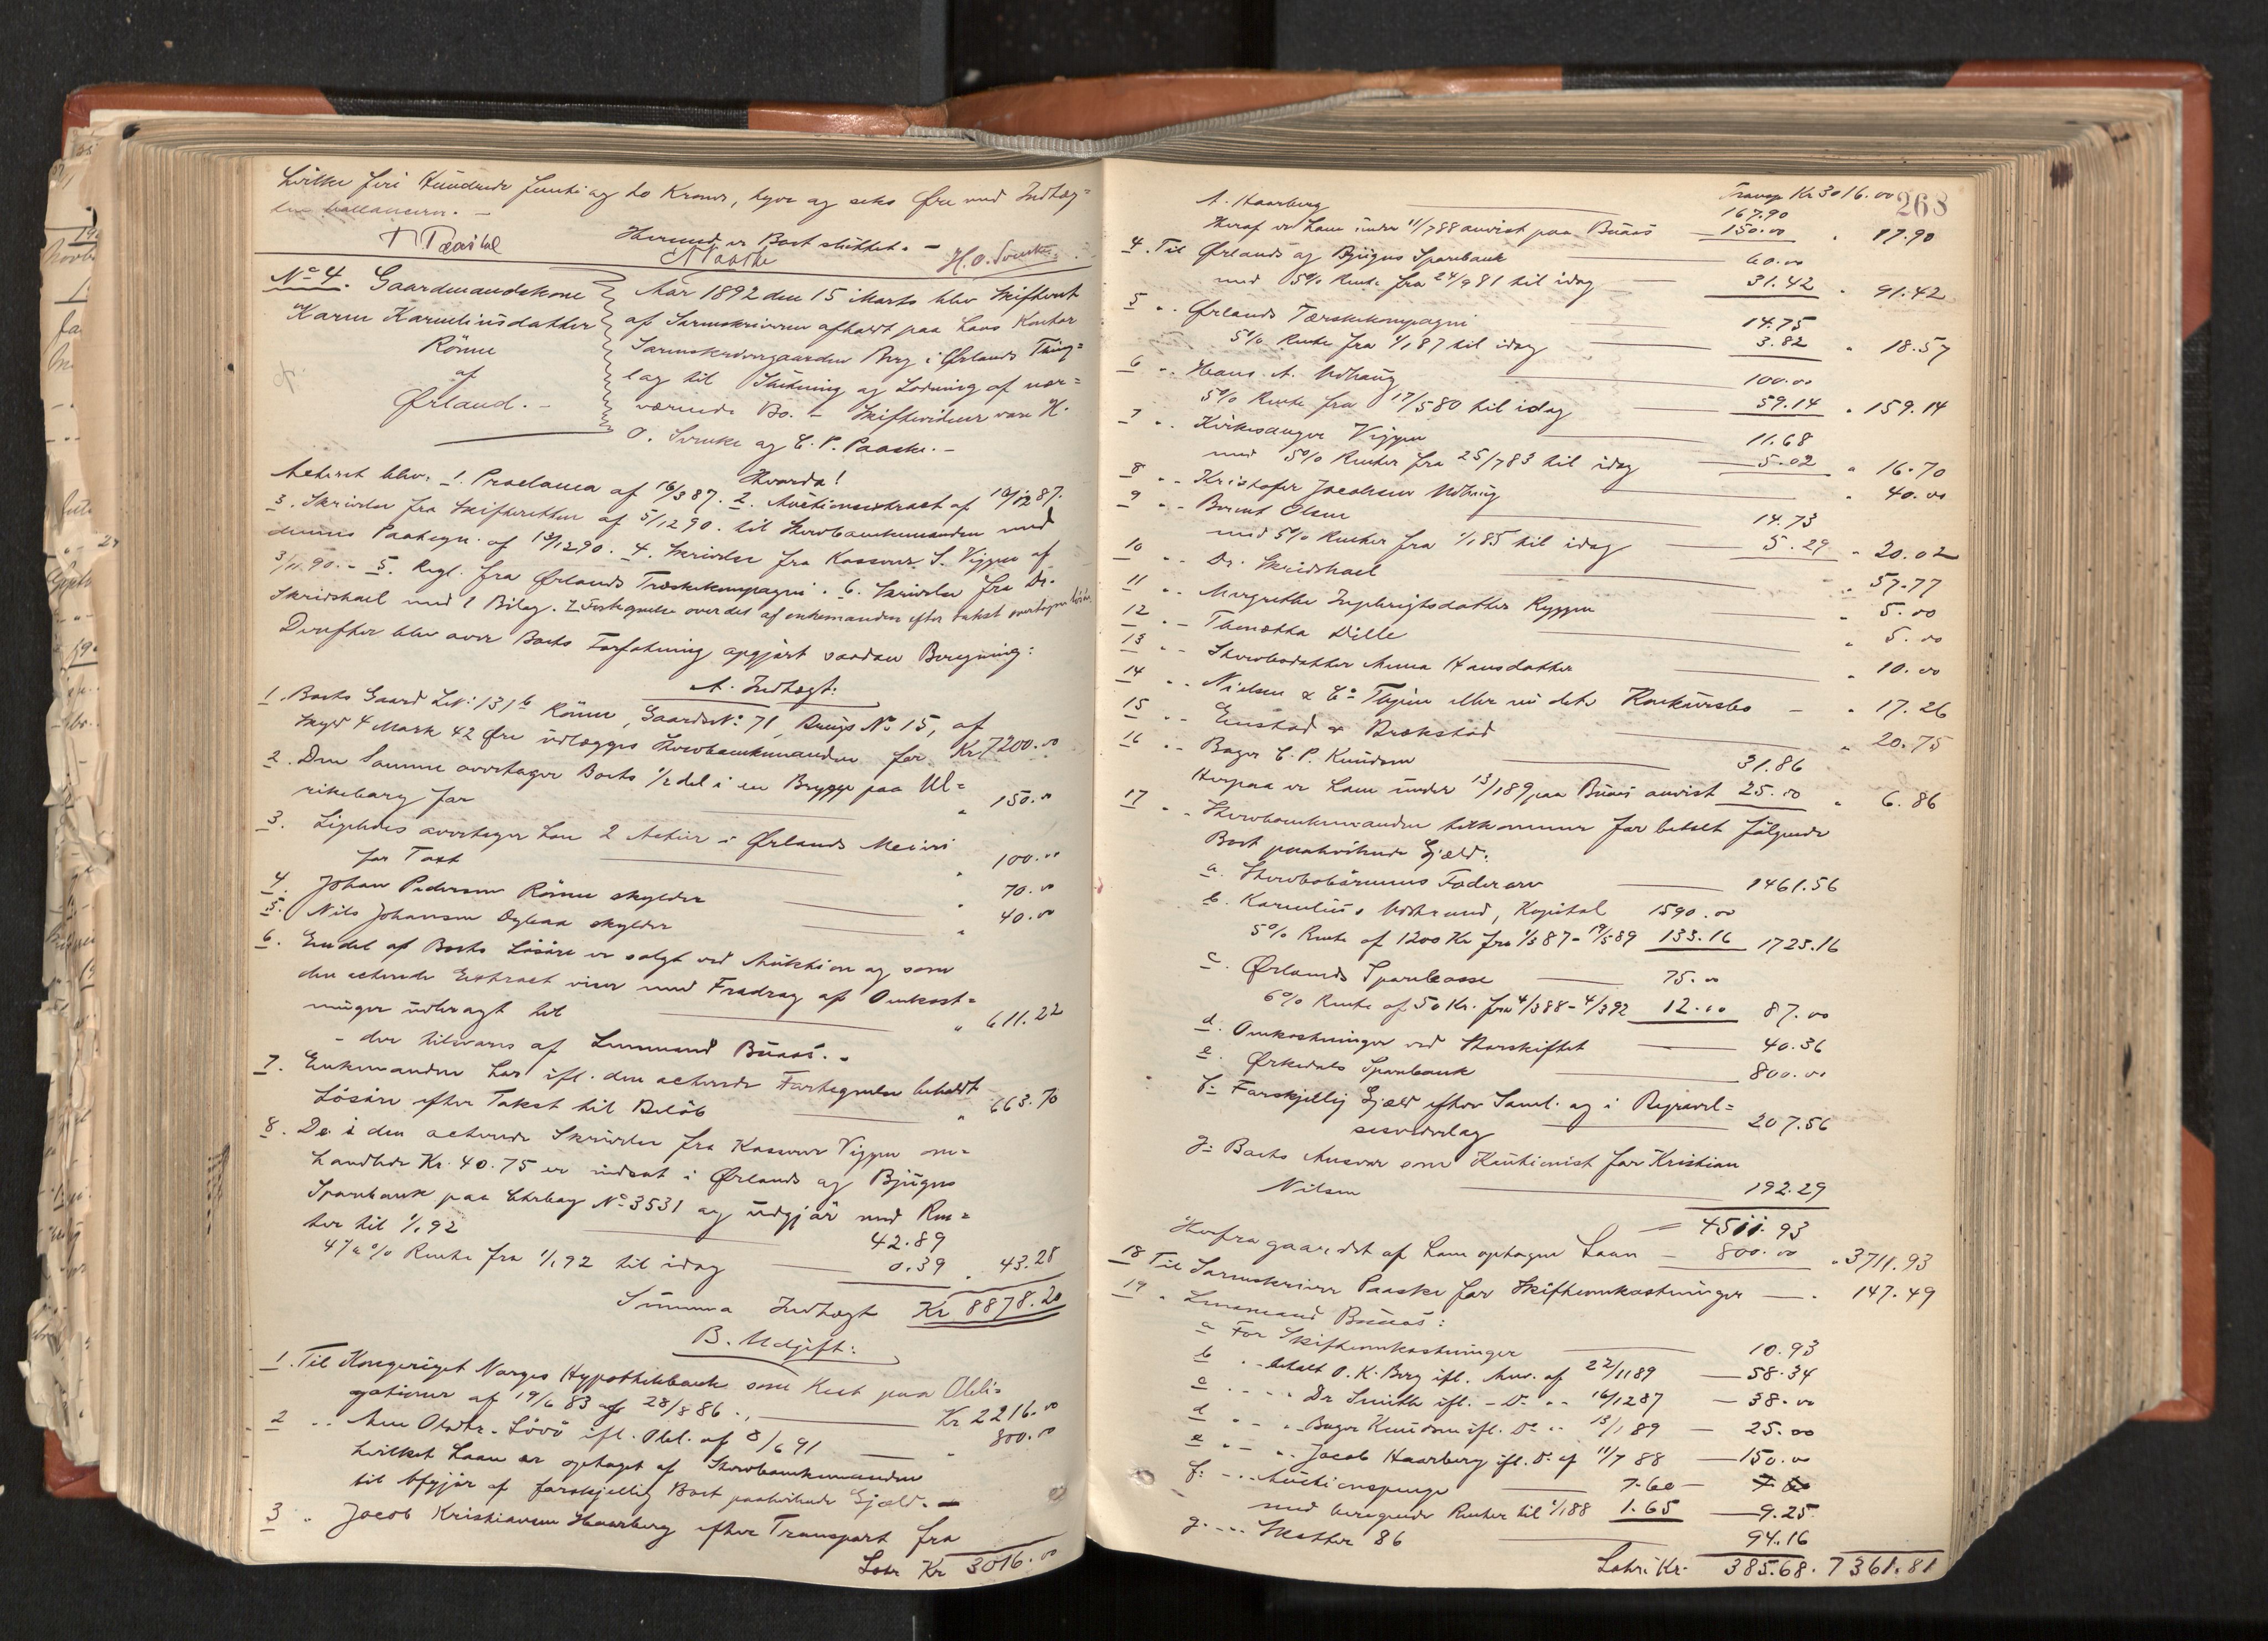 hvilke fire Hundrede femti og to Kroner, tyve og seks Øre med Indtæg=
ten ballancerer. —
Hermed er Boet sluttet. —
Paaske
No 4. Gaardmandskone
Karen Karneliusdatter
Rönne
af
Ørland. —
Aar 1892 den 15 Marts blev Skifteret
af Sorenskriveren afholdt paa hans Kontor
Sorenskrivergaarden Berg i Ørlands Thing=
lag til Slutning og Lodning af nær=
værende Bo. — Skiftevidner vare H.
O. Svenke og C. P. Paaske. —
Hvorda!
Acteret blev: 1. Proclama af 16/3 87. 2. Auctionsextract af 10/12 87.
3. Skrivelse fra Skifteretten af 5/12 90. til Stervboenkemanden med
dennes Paategn. af 13/12 90. 4. Skrivelse fra Kasserer S. Viggen af
3/11 90. - 5. Regl. fra Ørlands Træskekompagni. 6. Skrivelse fra Dr.
Skridshael med 1 Bilag. 7 Fortegnelse over det af enkemanden efter takst overtagne lösöre
Derefter blev over Boets Forfatning opgjort saadan Beregning:
A. Indtægt:
1. Boets Gaard Litr: 131b Rönne, GaardsNo: 71, Brugs No 15, af
Skyld 4 Mark 42 Øre udlægges Stervboenkemanden for Kr. 7200.00
2. Den Samme overtager Boets 1/2 del i en Brygge paa Ul=
rikeborg for " 150.00
3. Ligeledes overtager han 2 Actier i Ørlands Meieri
for Taxt " 100.00
4. Johan Pedersen Rönne skylder " 70.00
5. Nils Johansen Ophaa skylder " 40.00
6. Endel af Boets Lösöre er solgt ved Auktion og som
den acterede Extract viser med Fradrag af Omkost=
ninger udbragt til " 611.22
- der tilsvares af Lensmand Buaas. -
7. Enkemanden har ifl. den acterede Fortegnelse beholdt
Lösöre efter Takst til Belöb " 663.70
8. De i den acterede Skrivelse fra Kasserer Viggen om=
handlede Kr. 40.75 er indsat i Ørlands og Bjugns
Sparebank paa Chrbog No 3531 og udgjör med Ren=
ter til 1/1 92 42.89
4 1/2 % Rente fra 1/1 92 til idag 0.39 " 43.28
Summa Indtægt Kr 8878.20
B. Udgift:
1. Til Kongeriget Norges Hypothekbank som Rest paa Obli=
gationer af 19/6 83 og 28/8 86 Kr 2216.00
2 " Ane Olsdtr. Lövö ifl. Obl. af 8/6 91 " 800.00
hvilket Laan er optaget af Stervboenkemanden
til Afgjör af forskjellig Boet paahvilende Gjæld. —
3 " Jacob Kristiansen Haarberg efter Transport fra
Latr. Kr 3016.00
268
Transp Kr 3016.00
A. Haarberg 167.90
Heraf er ham under 11/7 88 anvist paa Buaas 150.00 " 17.90
4. Til Ørlands og Bjugns Sparebank 60.00
med 5% Rente fra 24/9 81 til idag 31.42 " 91.42
5 " Ørlands Tærskekompagni 14.75
5% Rente fra 1/1 87 til idag 3.82 " 18.57
6 " Hans A. Udhaug 100.00
5% Rente fra 17/5 80 til idag 59.14 " 159.14
7 " Kirkesanger Viggen 11.68
med 5% Renter fra 25/7 83 til idag 5.02 " 16.70
8 " Kristofer Jacobsen Udhaug " 40.00
9 " Bernt Olsen 14.73
med 5% Renter fra 1/1 85 til idag 5.29 " 20.02
10 " Dr. Skridshael " 57.77
11 " Margrethe Ingebrigtsdatter Ryggen " 5.00
12 " Dille " 5.00
13 " Stervbodatter Anna Hansdatter " 10.00
14 " Nielsen & Co Thjem eller nu dets Konkursbo — " 17.26
15 " Enstad & Brækstad " 20.75
16 " Bager C. P. Knudsen 31.86
Herpaa er ham under 13/1 89 paa Buaas anvist 25.00 " 6.86
17 " Stervboenkemanden tilkommer for betalt følgende
Boet paahvilende Gjæld:
a. Stervbobörnenes Faderarv 1461.56
b. Karnelius Udstrand, Kapital 1590.00
5% Rente af 1200 Kr fra 1/3 87 - 19/5 89 133.16 1723.16
c. Ørlands Sparekasse 75.00
6% Rente af 50 Kr. fra 4/3 88 - 4/3 92 12.00 87.00
d. Omkostninger ved Storskiftet 40.36
e. Ørkedals Sparebank 800.00
f. Forskjellig Gjæld efter Saml. og i Begravel=
sesvederlag 207.56
g. Boets Ansvar som Kautionist for Kristian
Nilsen 192.29
= 4511.93
Herfra gaar det af ham optagne Laan — 800.00 " 3711.93
18 Til Sorenskriver Paaske for Skifteomkostninger — " 147.49
19 " Lensmand Buaas:
a For Skifteomkostninger 10.93
b " - betalt O. K. Berg ifl. Anv. af 22/11 89 58.34
c " - " Dr Smith ifl. - Do " 16/12 87 — 38.00
d " - " Bager Knudsen ifl. Do " 13/1 89 — 25.00
e " - " Jacob Haarberg ifl. Do af 11/7 88 — 150.00
f. " Auctionspenge 7.60 — 7.60
med beregnede Renter til 1/1 88 1.65 — 9.25
g. " Skatter 86 94.16
Latr. Kr. 385.68. 7361.81